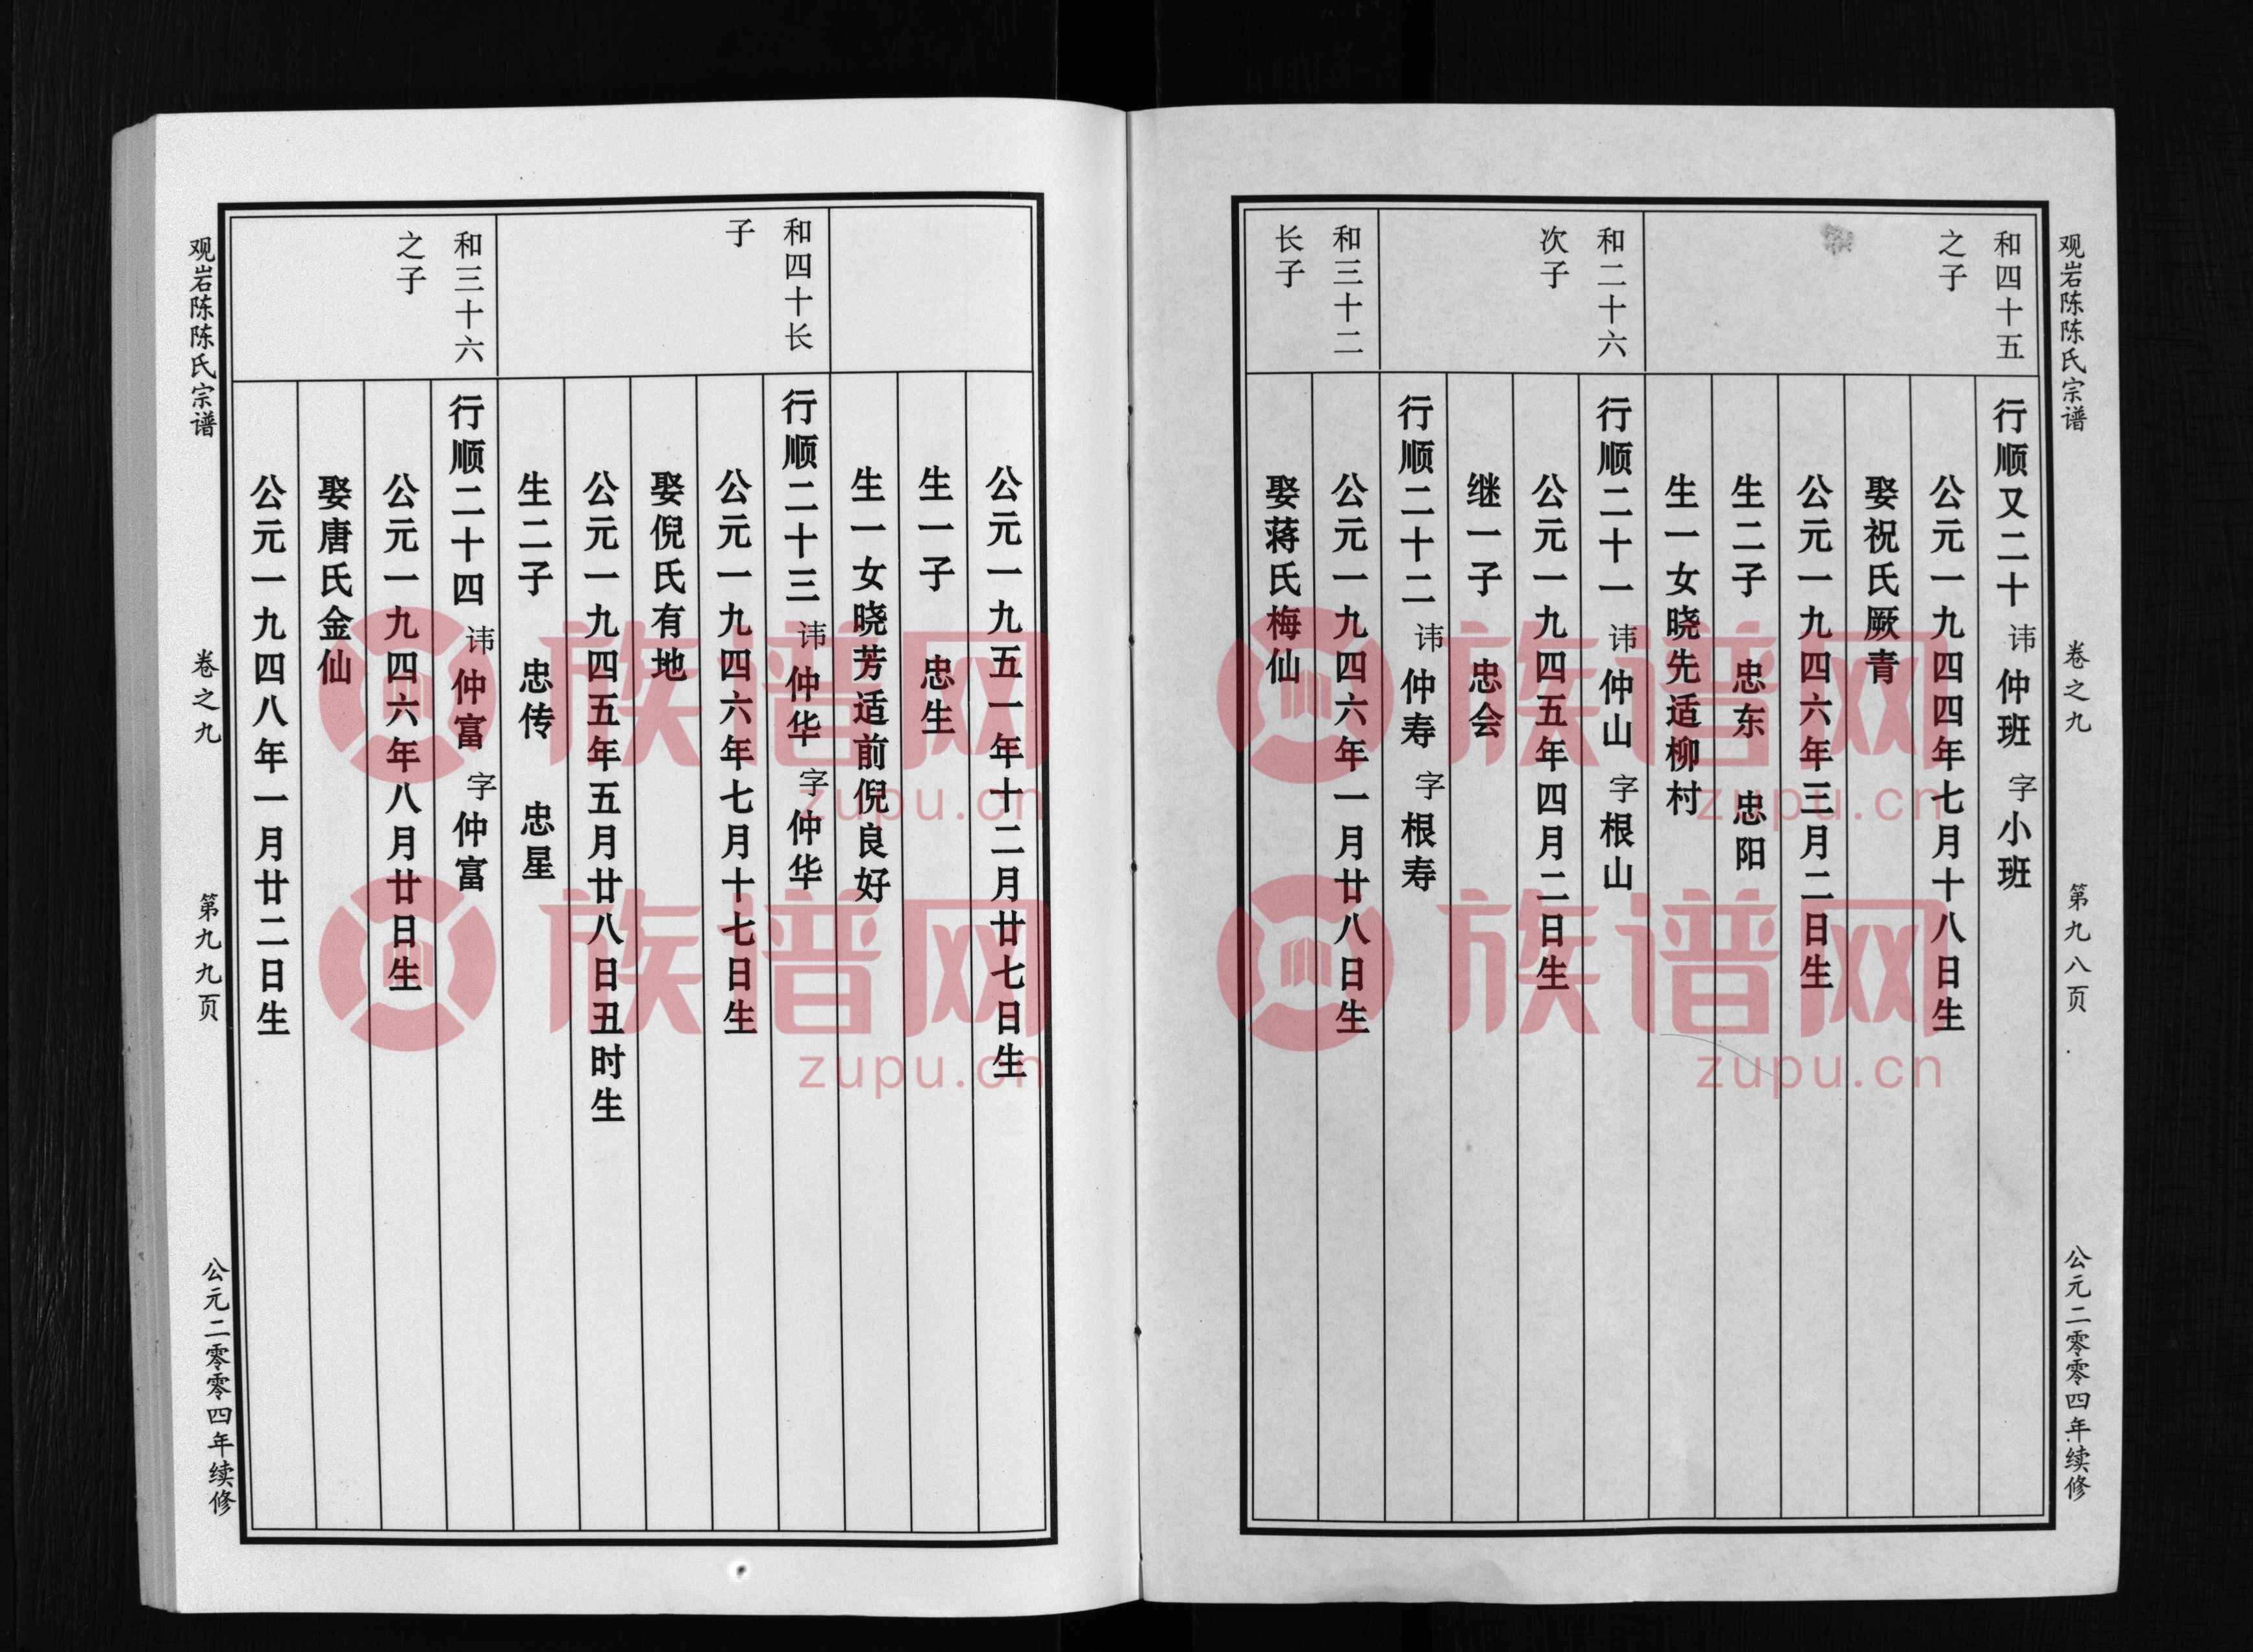 观岩陈陈氏宗谱
卷之九
第九八页
公元二零零四年续修
和四十五
之子
行顺又二十 讳 仲班 字 小班
公元一九四四年七月十八日生
娶祝氏厥青
公元一九四六年三月二日生
生二子 忠东 忠阳
生一女晓先适柳村
和二十六
次子
行顺二十一 讳 仲山 字 根山
公元一九四五年四月二日生
继一子 忠会
和三十二
长子
行顺二十二 讳 仲寿 字 根寿
公元一九四六年一月廿八日生
娶蒋氏梅仙
公元一九五一年十二月廿七日生
生一子 忠生
生一女晓芳适前倪良好
和四十长
子
行顺二十三 讳 仲华 字 仲华
公元一九四六年七月十七日生
娶倪氏有地
公元一九四五年五月廿八日丑时生
生二子 忠传 忠星
和三十六
之子
行顺二十四 讳 仲富 字 仲富
公元一九四六年八月廿日生
娶唐氏金仙
公元一九四八年一月廿二日生
观岩陈陈氏宗谱
卷之九
第九九页
公元二零零四年续修
族谱网
zupu.cn
族谱网
zupu.cn
族谱网
zupu.cn
族谱网
zupu.cn